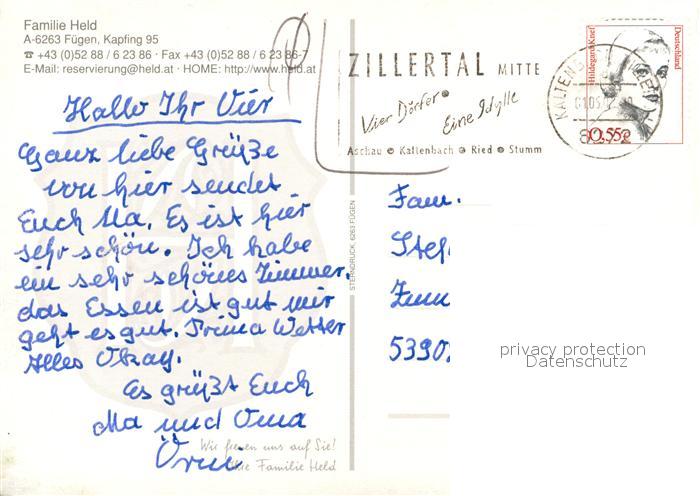 Familie Held
A-6263 Fügen, Kapfing 95
☎ +43 (0)52 88 / 6 23 86 · Fax +43 (0)52 88 / 6 23 86-7
E-Mail: reservierung@held.at · HOME: http://www.held.at
Hallo Ihr Vier
Ganz liebe Grüße
von hier sendet
Euch Ma. Es ist hier
sehr schön. Ich habe
ein sehr schönes Zimmer.
das Essen ist gut mir
geht es gut. Prima Wetter
Alles Okay.
Es grüßt Euch
Ma und Oma
Wir freuen uns auf Sie!
Ihre Familie Held
STERNDRUCK, 6263 FÜGEN
ZILLERTAL MITTE
Vier Dörfer
Eine Idylle
Aschau Kaltenbach Ried Stumm
Hildegard Knef
Deutschland
0,55€
Fam.
Stef
5390
privacy protection
Datenschutz